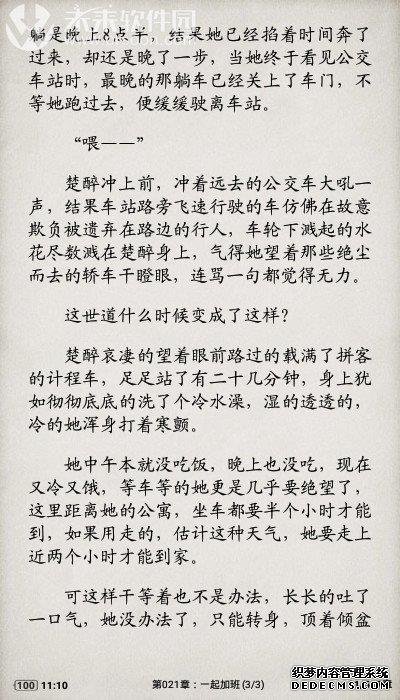 未来软件园
躺是晚上8点半，结果她已经掐着时间奔了
过来，却还是晚了一步，当她终于看见公交
车站时，最晚的那躺车已经关上了车门，不
等她跑过去，便缓缓驶离车站。
“喂——”
楚醉冲上前，冲着远去的公交车大吼一
声，结果车站路旁飞速行驶的车仿佛在故意
欺负被遗弃在路边的行人，车轮下溅起的水
花尽数溅在楚醉身上，气得她望着那些绝尘
而去的轿车干瞪眼，连骂一句都觉得无力。
这世道什么时候变成了这样？
楚醉哀凄的望着眼前路过的载满了拼客
的计程车，足足站了有二十几分钟，身上犹
如彻彻底底的洗了个冷水澡，湿的透透的，
冷的她浑身打着寒颤。
她中午本就没吃饭，晚上也没吃，现在
又冷又饿，等车等的她更是几乎要绝望了，
这里距离她的公寓，坐车都要半个小时才能
到，如果用走的，估计这种天气，她要走上
近两个小时才能到家。
可这样干等着也不是办法，长长的吐了
一口气，她没办法了，只能转身，顶着倾盆
100 11:10
第021章：一起加班(3/3)